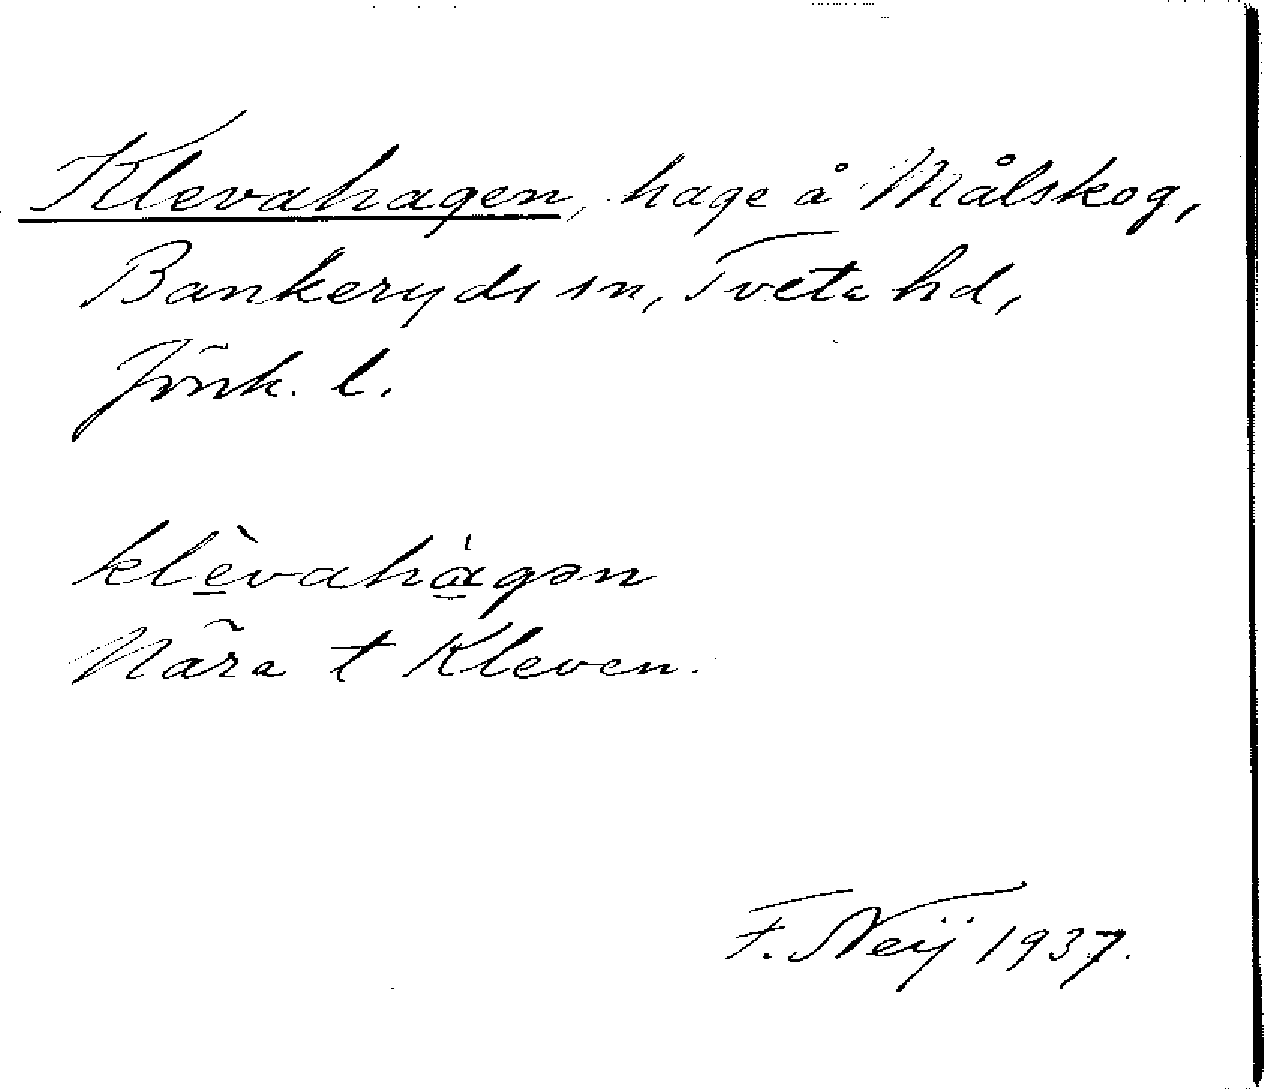 Klevahagen, hage å Målskog,
Bankeryds sn, Tveta hd,
Jönk. l.
klè̱vahà̱gən
Nära t Kleven.
F. Neij 1937.